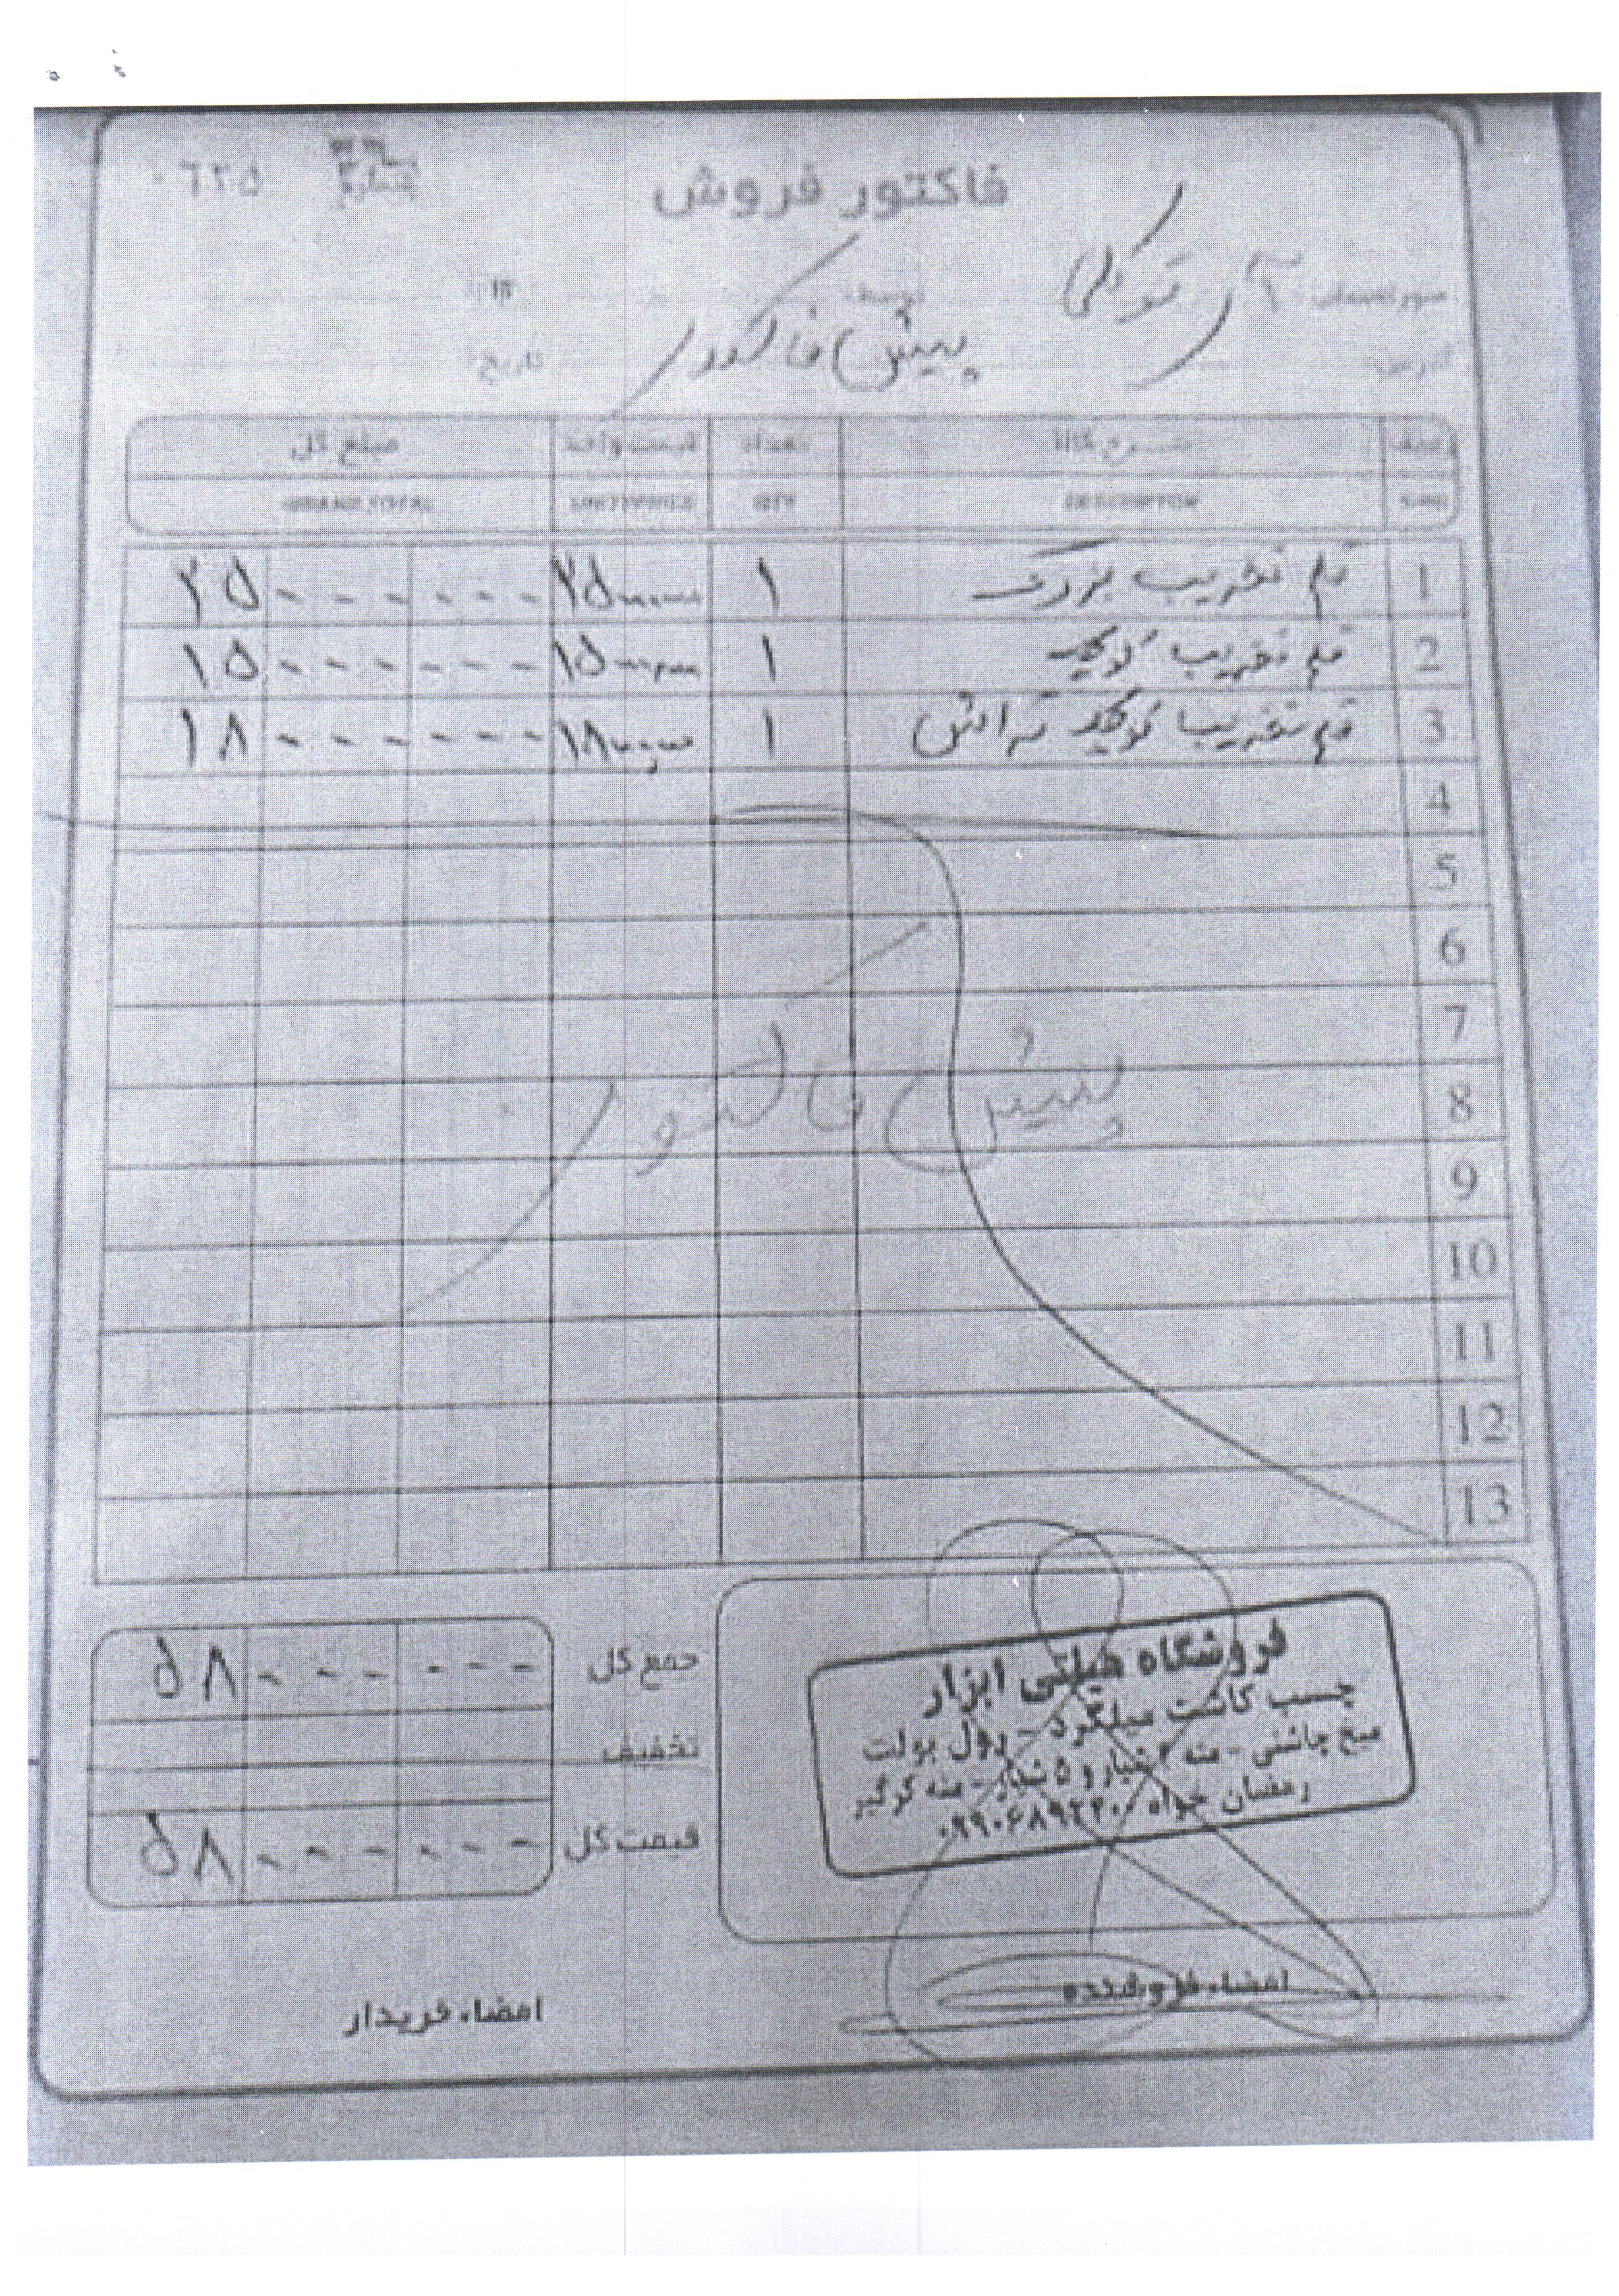 فاکتور فروش
شماره ۰۶۲۵
صورتحساب آقای توکلی توسط
آدرس پیش فاکتور تاریخ
ردیف شرح کالا تعداد قیمت واحد مبلغ کل
DESCRIPTION QTY UNIT PRICE GRAND TOTAL
1 قلم تخریب بزرگ ۱ ۲۵۰۰۰۰۰۰ ۲۵۰۰۰۰۰۰
2 قلم تخریب کوچک ۱ ۱۵۰۰۰۰۰۰ ۱۵۰۰۰۰۰۰
3 قلم تخریب کوچک ۱ ۱۸۰۰۰۰۰۰ ۱۸۰۰۰۰۰۰
4
5
6
7
8 پیش فاکتور
9
10
11
12
13
جمع کل ۵۸۰۰۰۰۰۰
تخفیف
قیمت کل ۵۸۰۰۰۰۰۰
فروشگاه هیلتی ابزار
چسب کاشت میلگرد - رول بولت
میخ چاشنی - مته ۴ شیار و ۵ شیار - مته گرگیر
رمضان خواه ۰۹۹۰۶۸۹۲۲۲۰
امضاء فروشنده
امضاء خریدار